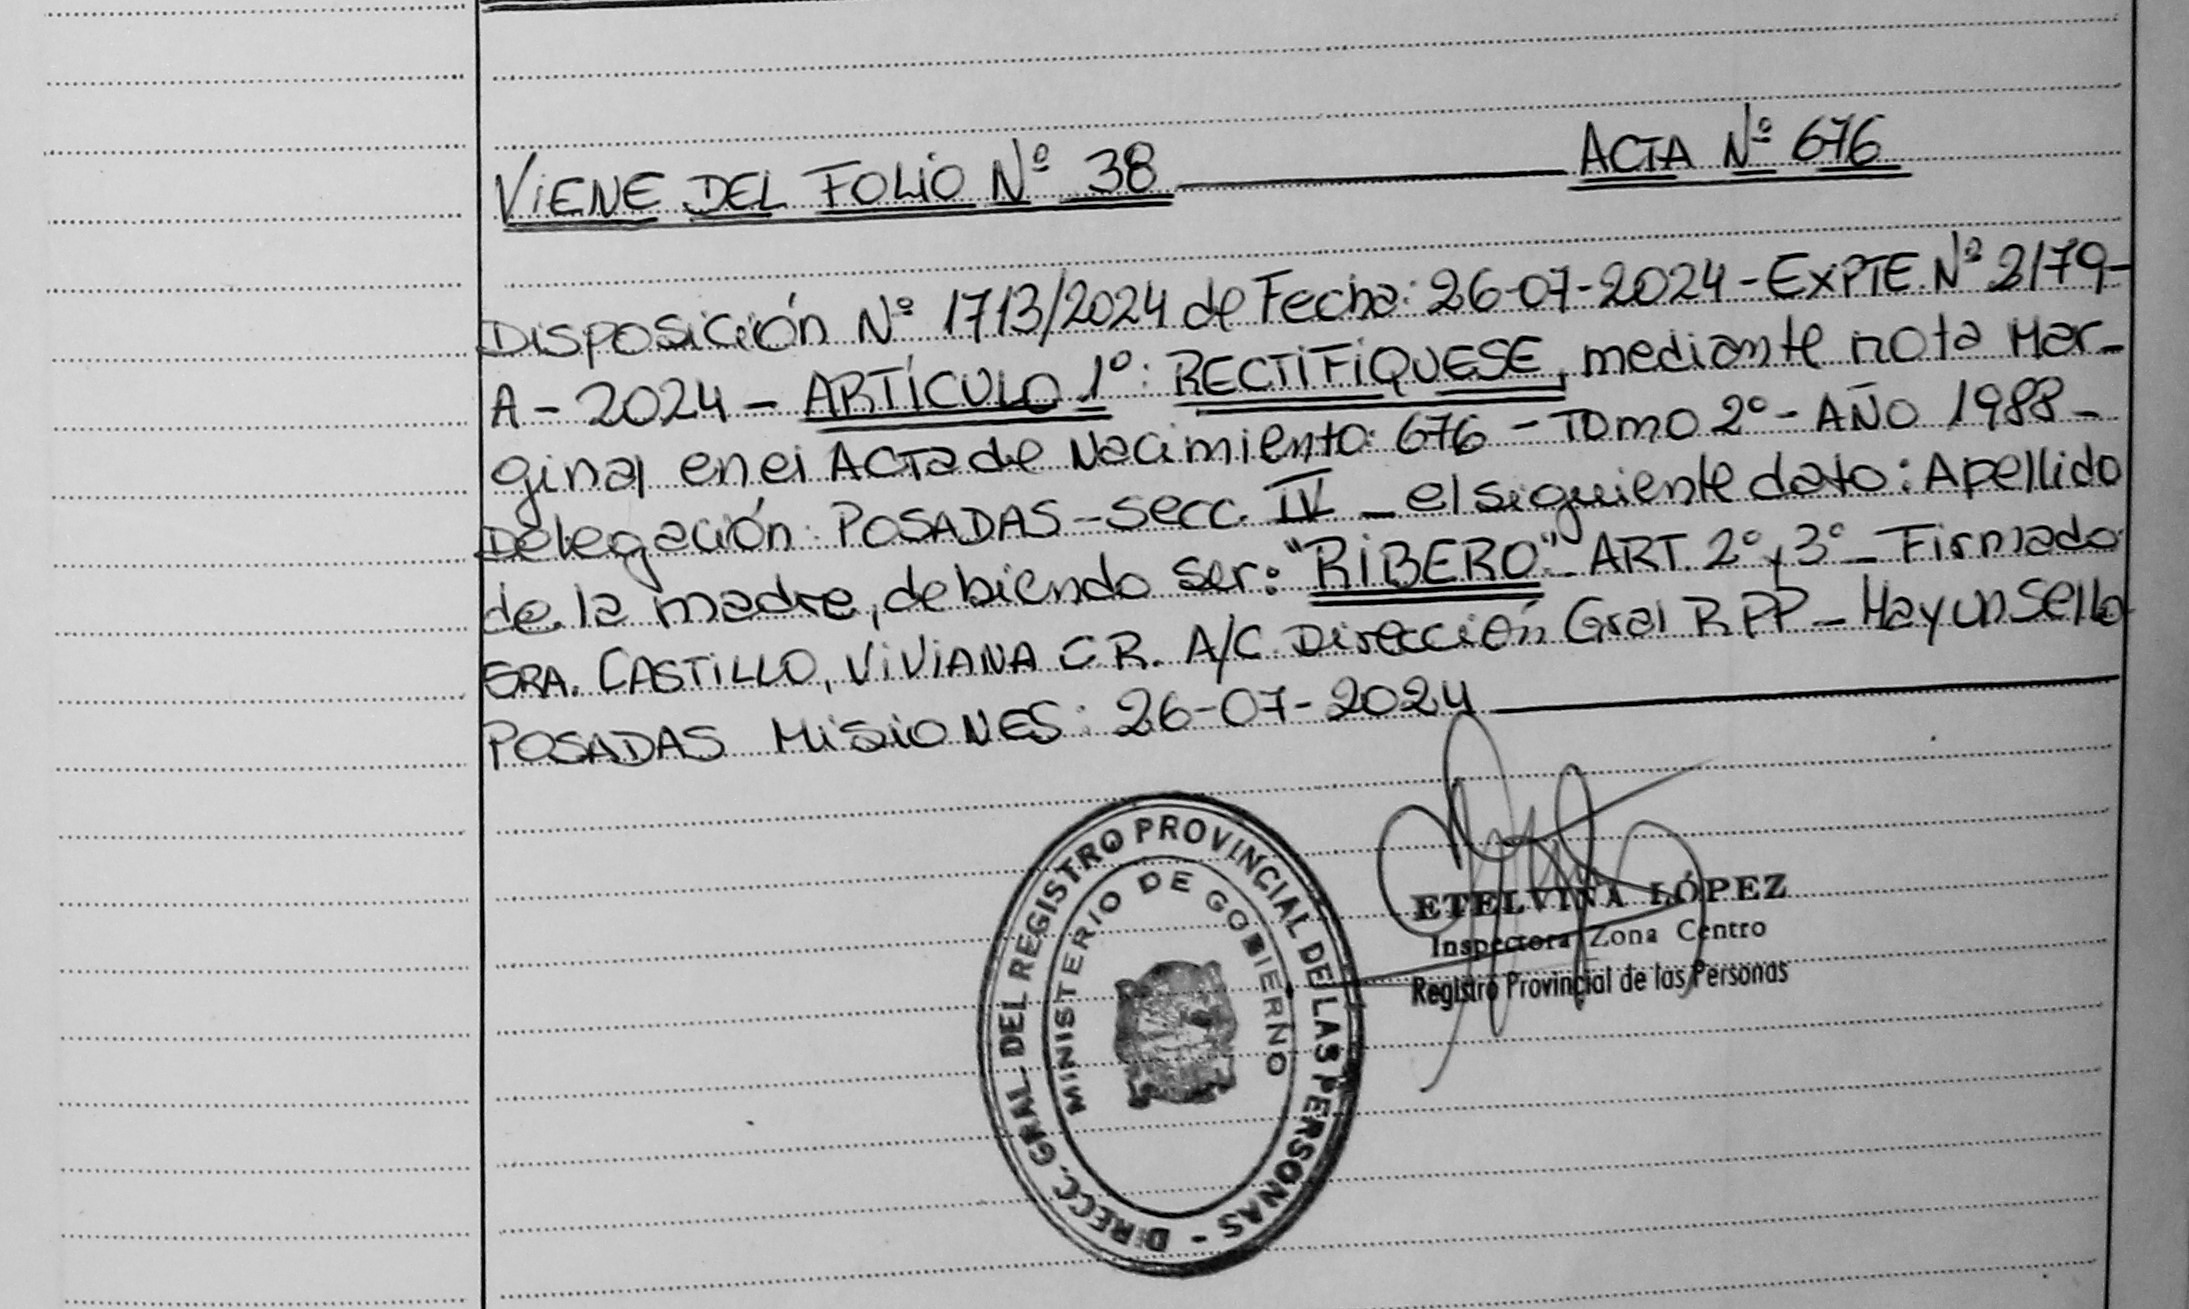 VIENE DEL FOLIO Nº 38 ACTA Nº 676
DISPOSICIÓN Nº 1713/2024 de Fecha: 26-07-2024 - EXPTE. Nº 2179-
A - 2024 - ARTÍCULO 1º: RECTIFIQUESE, mediante nota Mar-
ginal en el ACTA de Nacimiento: 676 - TOMO 2º - AÑO 1988 -
Delegación: POSADAS - Secc. IV - el siguiente dato: Apellido
de la madre, debiendo ser: "RIBERO". ART. 2º y 3º - Firmado
SRA. CASTILLO, VIVIANA C R. A/C Dirección Gral RPP - Hay un Sello
POSADAS MISIONES: 26-07-2024
DIRECC. GRAL. DEL REGISTRO PROVINCIAL DE LAS PERSONAS -
MINISTERIO DE GOBIERNO
ETELVINA LÓPEZ
Inspectora Zona Centro
Registro Provincial de las Personas